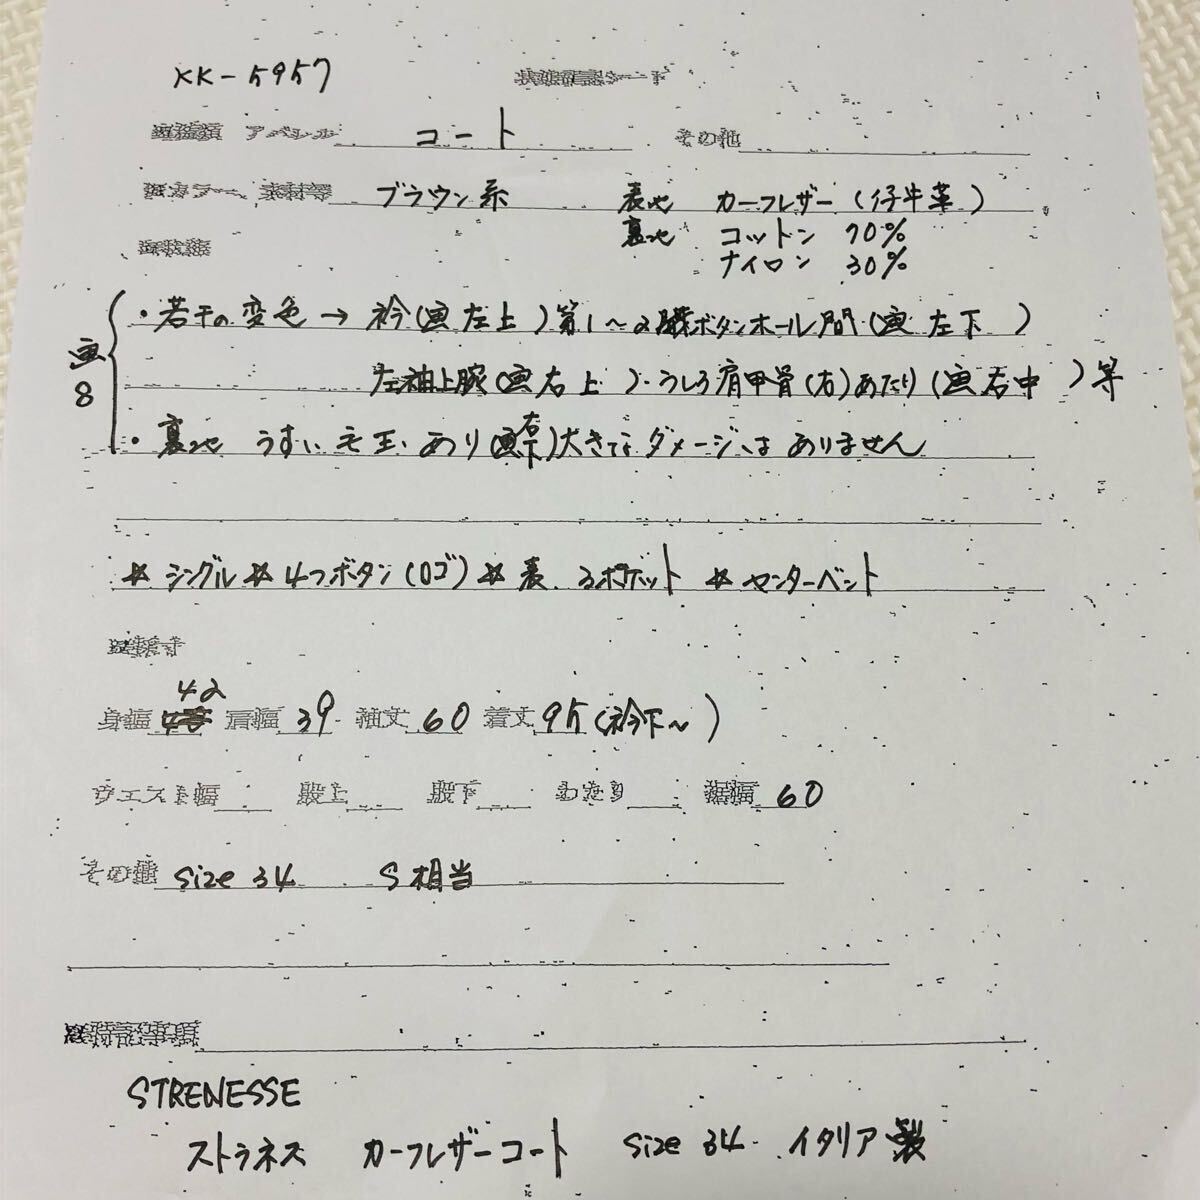 KK-5957 状態確認シート
アパレル コート その他
カラー、素材等 ブラウン系 表地 カーフレザー(仔牛革)
裏地 コットン 70%
ナイロン 30%
画8
・若干の変色→衿(画左上)第1〜2ボタンホール間(画左下 )
左袖上腕(画右上 )・うしろ肩甲骨(右)あたり(画右中 )等
・裏地 うすい毛玉あり(画右下)大きなダメージはありません
☆シングル☆4つボタン(ロゴ)☆表、3ポケット ☆センターベント
採寸
身幅 42 肩幅 39 袖丈 60 着丈 95(衿下〜)
ウエスト幅 股上 股下 わたり 裾幅 60
その他 size 34 S相当
特記事項
STRENESSE
ストラネス カーフレザーコート size 34 イタリア製